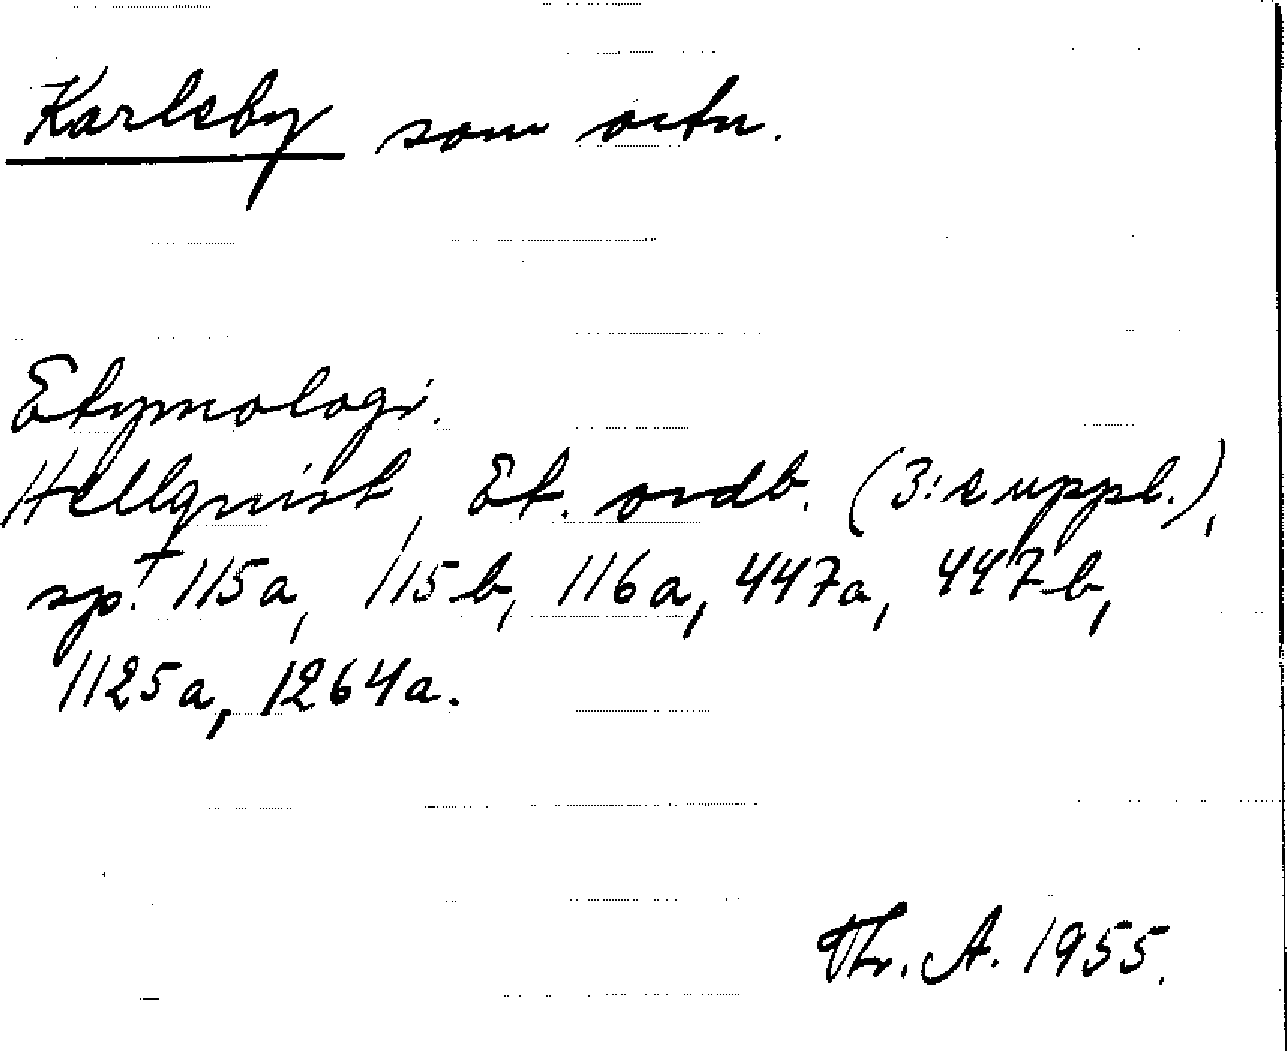 Karlsby som ortn.
Etymologi.
Hellqvist, Et. ordb. (3:e uppl.),
sp. 115a, 115b, 116a, 447a, 447b,
1125a, 1264a.
Thr. A. 1955.